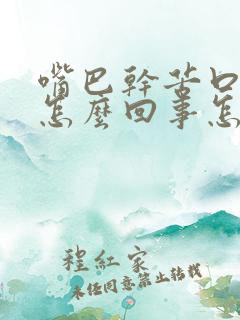 嘴巴幹苦口
怎麼回事怎
程紅家
未经同意禁止转载